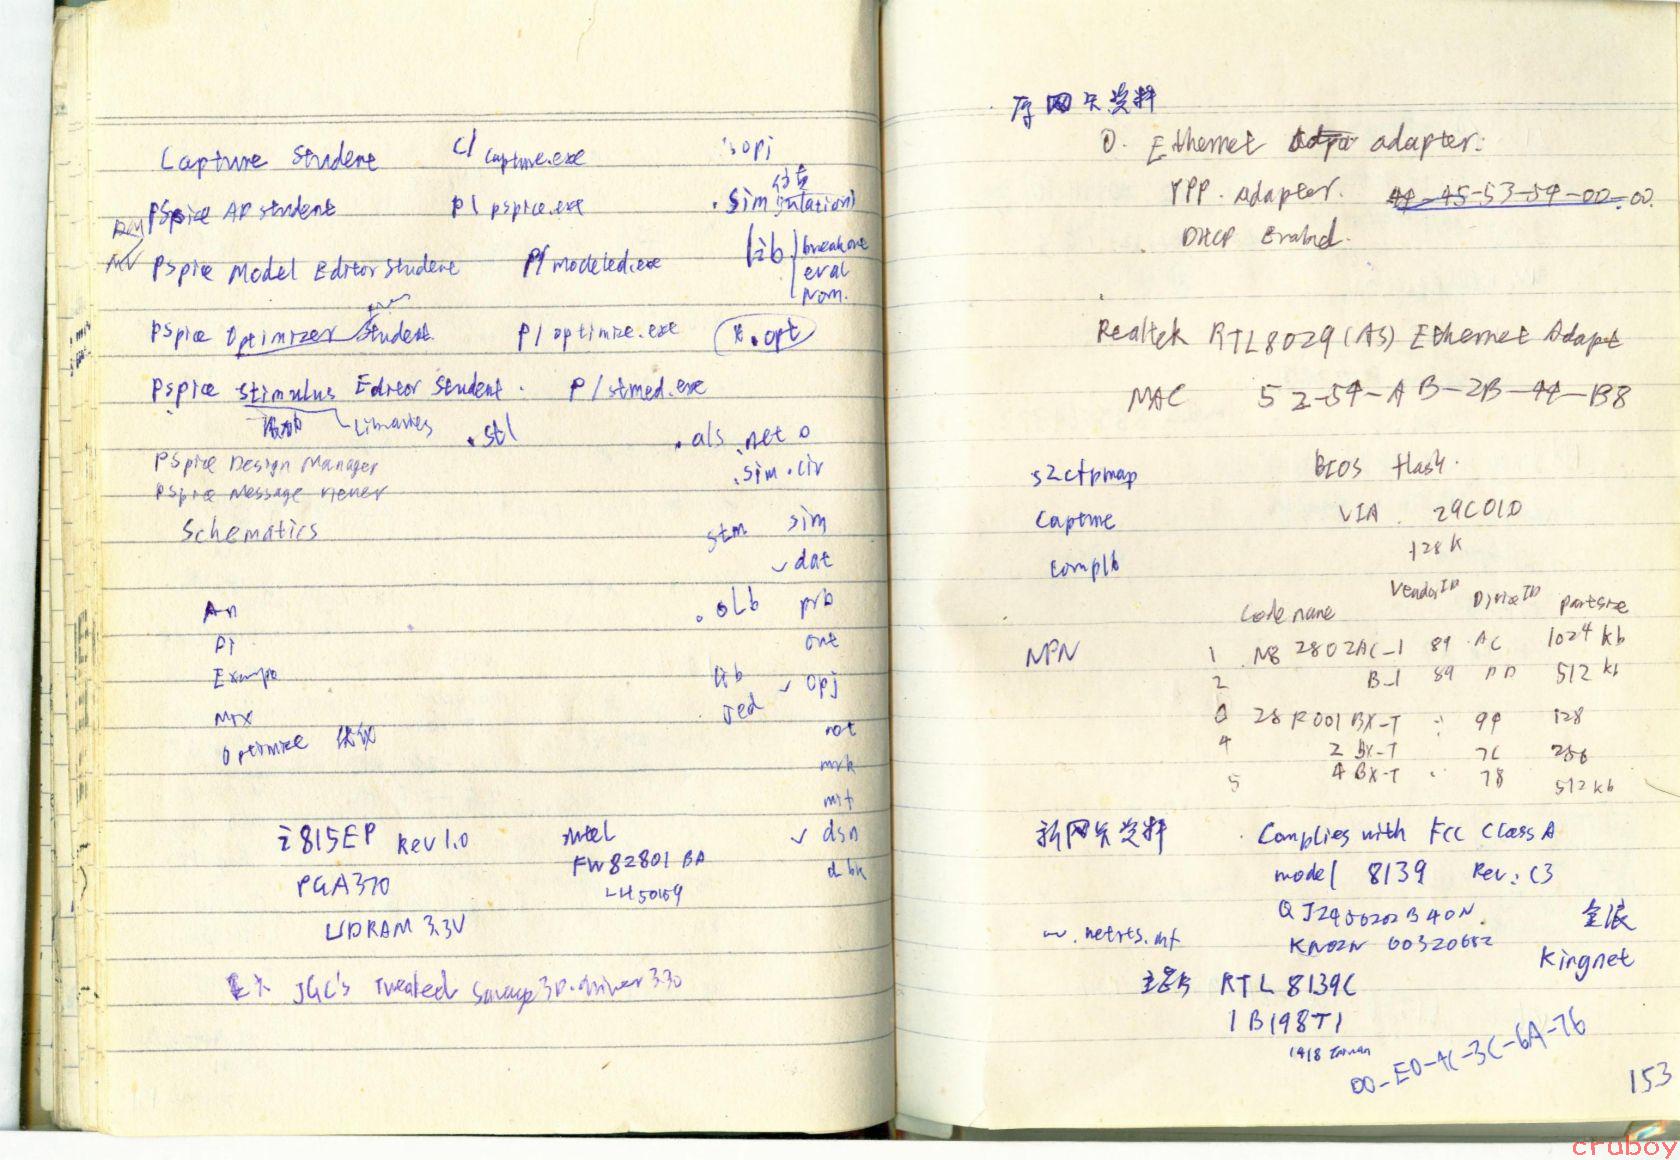 Capture Student c/ capture.exe .opj
PSpice AD student p/ pspice.exe .sim (simulation) 仿真
PSpice Model Editor Student p/ modeled.exe lib breakout
eval
nom.
PSpice Optimizer Student p/ optimize.exe *.opt
PSpice Stimulus Editor Student. p/stmed.exe
激励 Libraries .stl .als .net
.sim.cir
PSpice Design Manager
PSpice Message Viewer
Schematics stm sim
dat
An .olb prb
PI out
Examp lib opj
Mix Jed
Optimize 优化 not
mrk
mif
i815EP Rev 1.0 intel dsn
FW82801 BA dbk
PGA370
UDRAM 3.3V
JGC's Tweaked Savage3D.driver 3.30
网卡资料
0. Ethernet adapter:
PPP. Adapter. 44-45-53-54-00-00.
DHCP Enabled.
Realtek RTL8029(AS) Ethernet Adapt
MAC 52-54-AB-2B-44-B8
s2ctpmap BIOS flash.
Capture VIA. 29C01D
complb 128K
Code name VendorID DeviceID partsize
NPN 1 N8 2802AC-1 89 AC 1024 kb
2 B-1 89 512 kb
28F001BX-T 94 128
4 2 BX-T 7C 256
5 4 BX-T 78 512kb
新网卡资料 Complies with FCC Class A
model 8139 Rev: C3
金浪
w.netrts.inf
Kingnet
主芯片 RTL 8139C
1B198T1
Taiwan
00-E0-4C-3C-6A-76
153
cruboy